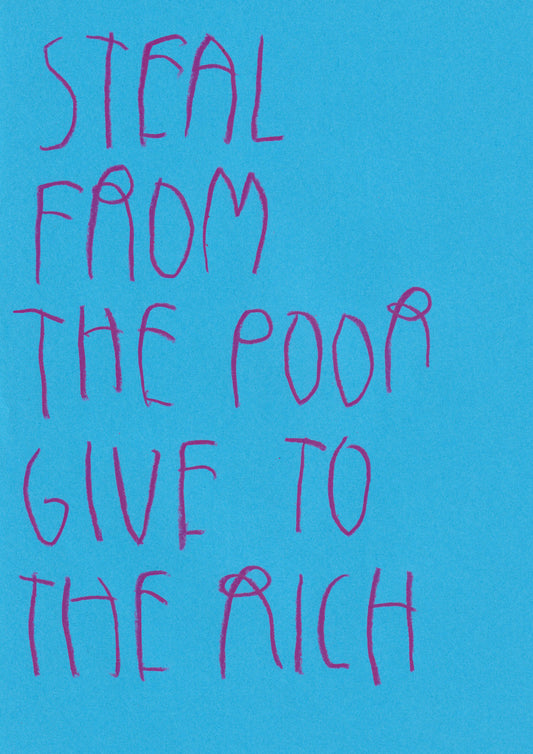 STEAL
FROM
THE POOR
GIVE TO
THE RICH